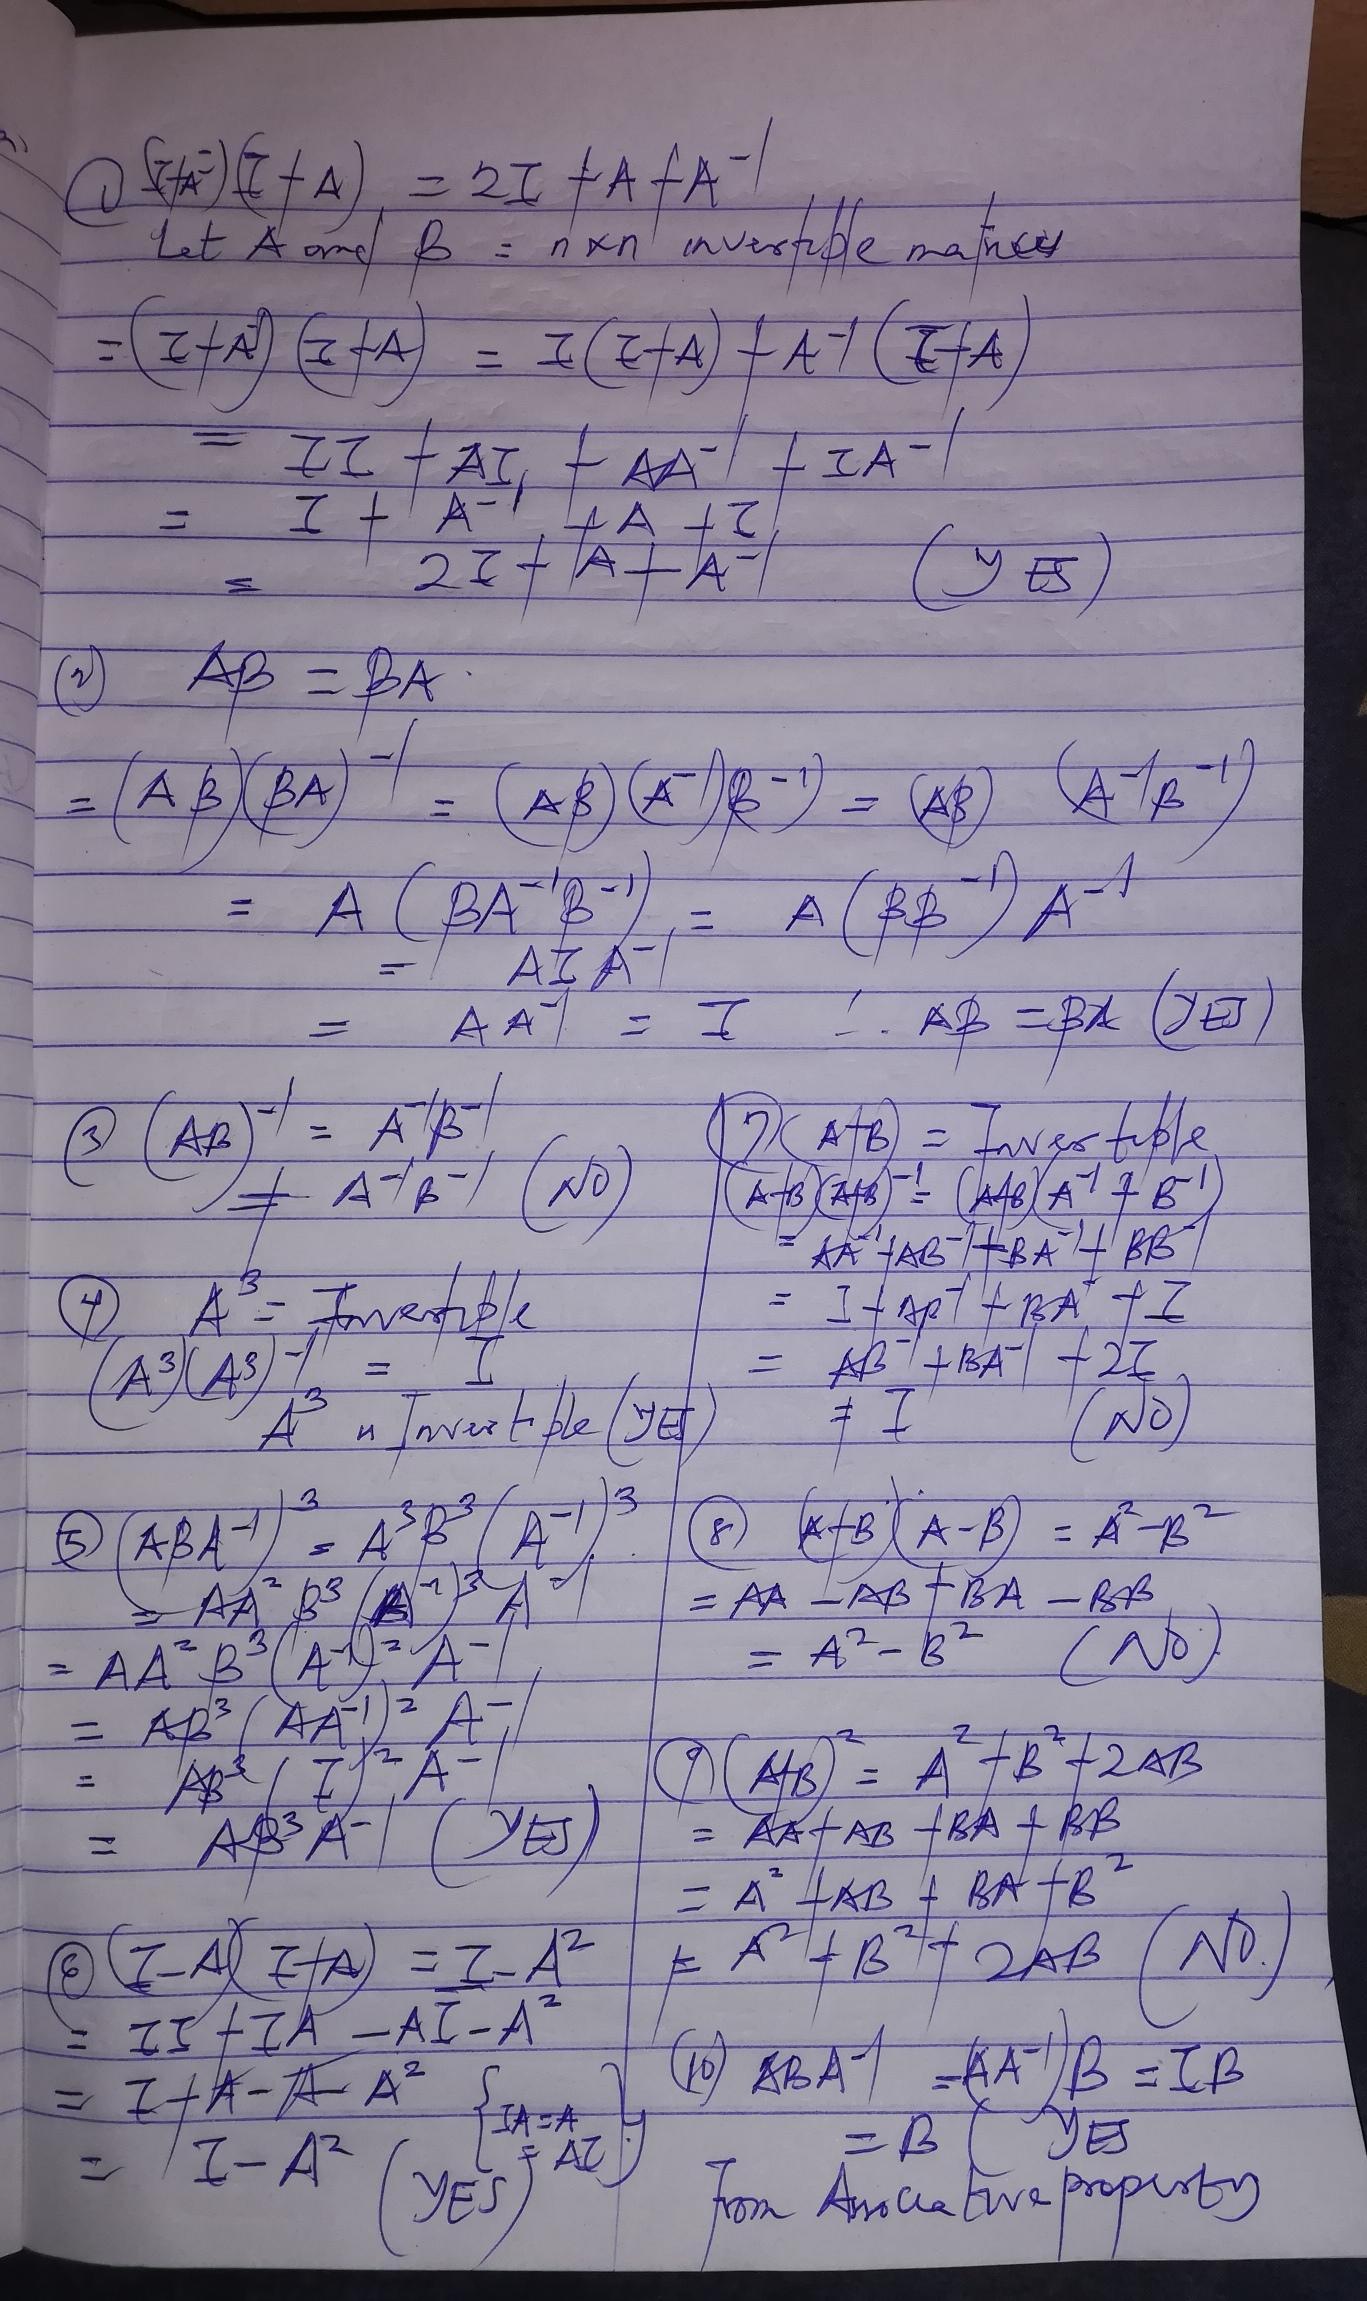 ① (I+A⁻)(I+A) = 2I + A + A⁻¹
Let A and B = n×n invertible matrices
= (I+A⁻¹)(I+A) = I(I+A) + A⁻¹(I+A)
= II + AI + AA⁻¹ + IA⁻¹
= I + A⁻¹ + A + I
= 2I + A + A⁻¹ (YES)
(2) AB = BA
= (AB)(BA)⁻¹ = (AB)(A⁻¹B⁻¹) = (AB) (A⁻¹B⁻¹)
= A(BA⁻¹B⁻¹) = A(BB⁻¹)A⁻¹
= AIA⁻¹
= AA⁻¹ = I ∴ AB = BA (YES)
③ (AB)⁻¹ = A⁻¹B⁻¹
≠ A⁻¹B⁻¹ (NO)
④ A³ = Invertible
(A³)(A³)⁻¹ = I
A³ is Invertible (YES)
⑤ (ABA⁻¹)³ = A³B³(A⁻¹)³
= AA²B³(A⁻¹)³A⁻¹
= AA²B³(A⁻¹)²A⁻¹
= AB³(AA⁻¹)²A⁻¹
= AB³(I)²A⁻¹
= AB³A⁻¹ (YES)
⑥ (I-A)(I+A) = I-A²
= II + IA - AI - A²
= I + A - A - A² {IA = A
= AI}
= I - A² (YES)
⑦ (A+B) = Invertible
(A+B)(A+B)⁻¹ = (A+B)(A⁻¹ + B⁻¹)
= AA⁻¹ + AB⁻¹ + BA⁻¹ + BB⁻¹
= I + AB⁻¹ + BA⁻ + I
= AB⁻¹ + BA⁻¹ + 2I
≠ I (NO)
⑧ (A+B)(A-B) = A²-B²
= AA - AB + BA - BB
= A² - B² (NO)
⑨ (A+B)² = A² + B² + 2AB
= AA + AB + BA + BB
= A² + AB + BA + B²
≠ A² + B² + 2AB (NO.)
(10) ABA⁻¹ = (AA⁻¹)B = IB
= B (YES
From Associative property